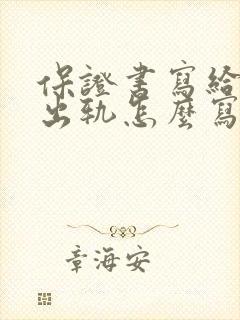 保證書寫給
出軌怎麼寫
章海安